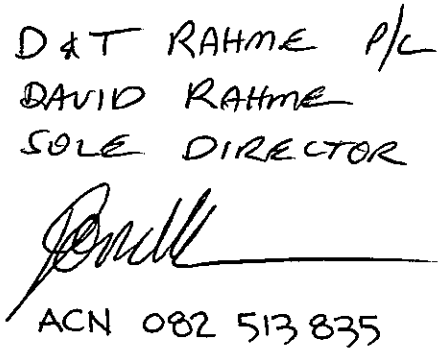 D & T RAHME P/L
DAVID RAHME
SOLE DIRECTOR
ACN 082 513 835